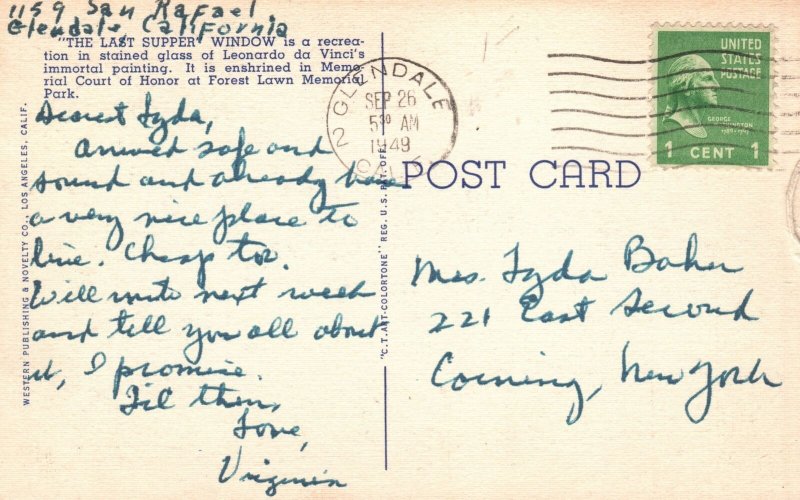 1159 San Rafael
Glendale, California
"THE LAST SUPPER" WINDOW is a recrea-
tion in stained glass of Leonardo da Vinci's
immortal painting. It is enshrined in Memo-
rial Court of Honor at Forest Lawn Memorial
Park.
Dearest Lyda,
Arrived safe and
sound and already have
a very nice place to
live. Cheap too.
Will write next week
and tell you all about
it, I promise.
Til then,
Love,
Virginia
WESTERN PUBLISHING & NOVELTY CO., LOS ANGELES, CALIF.
"C.T. ART-COLORTONE" REG. U.S. PAT. OFF.
GLENDALE
2
SEP 26
5 30 AM
1949
CALIF.
UNITED
STATES
POSTAGE
GEORGE
WASHINGTON
1789-1797
1 CENT 1
POST CARD
Mrs. Lyda Baker
221 East Second
Corning, New York